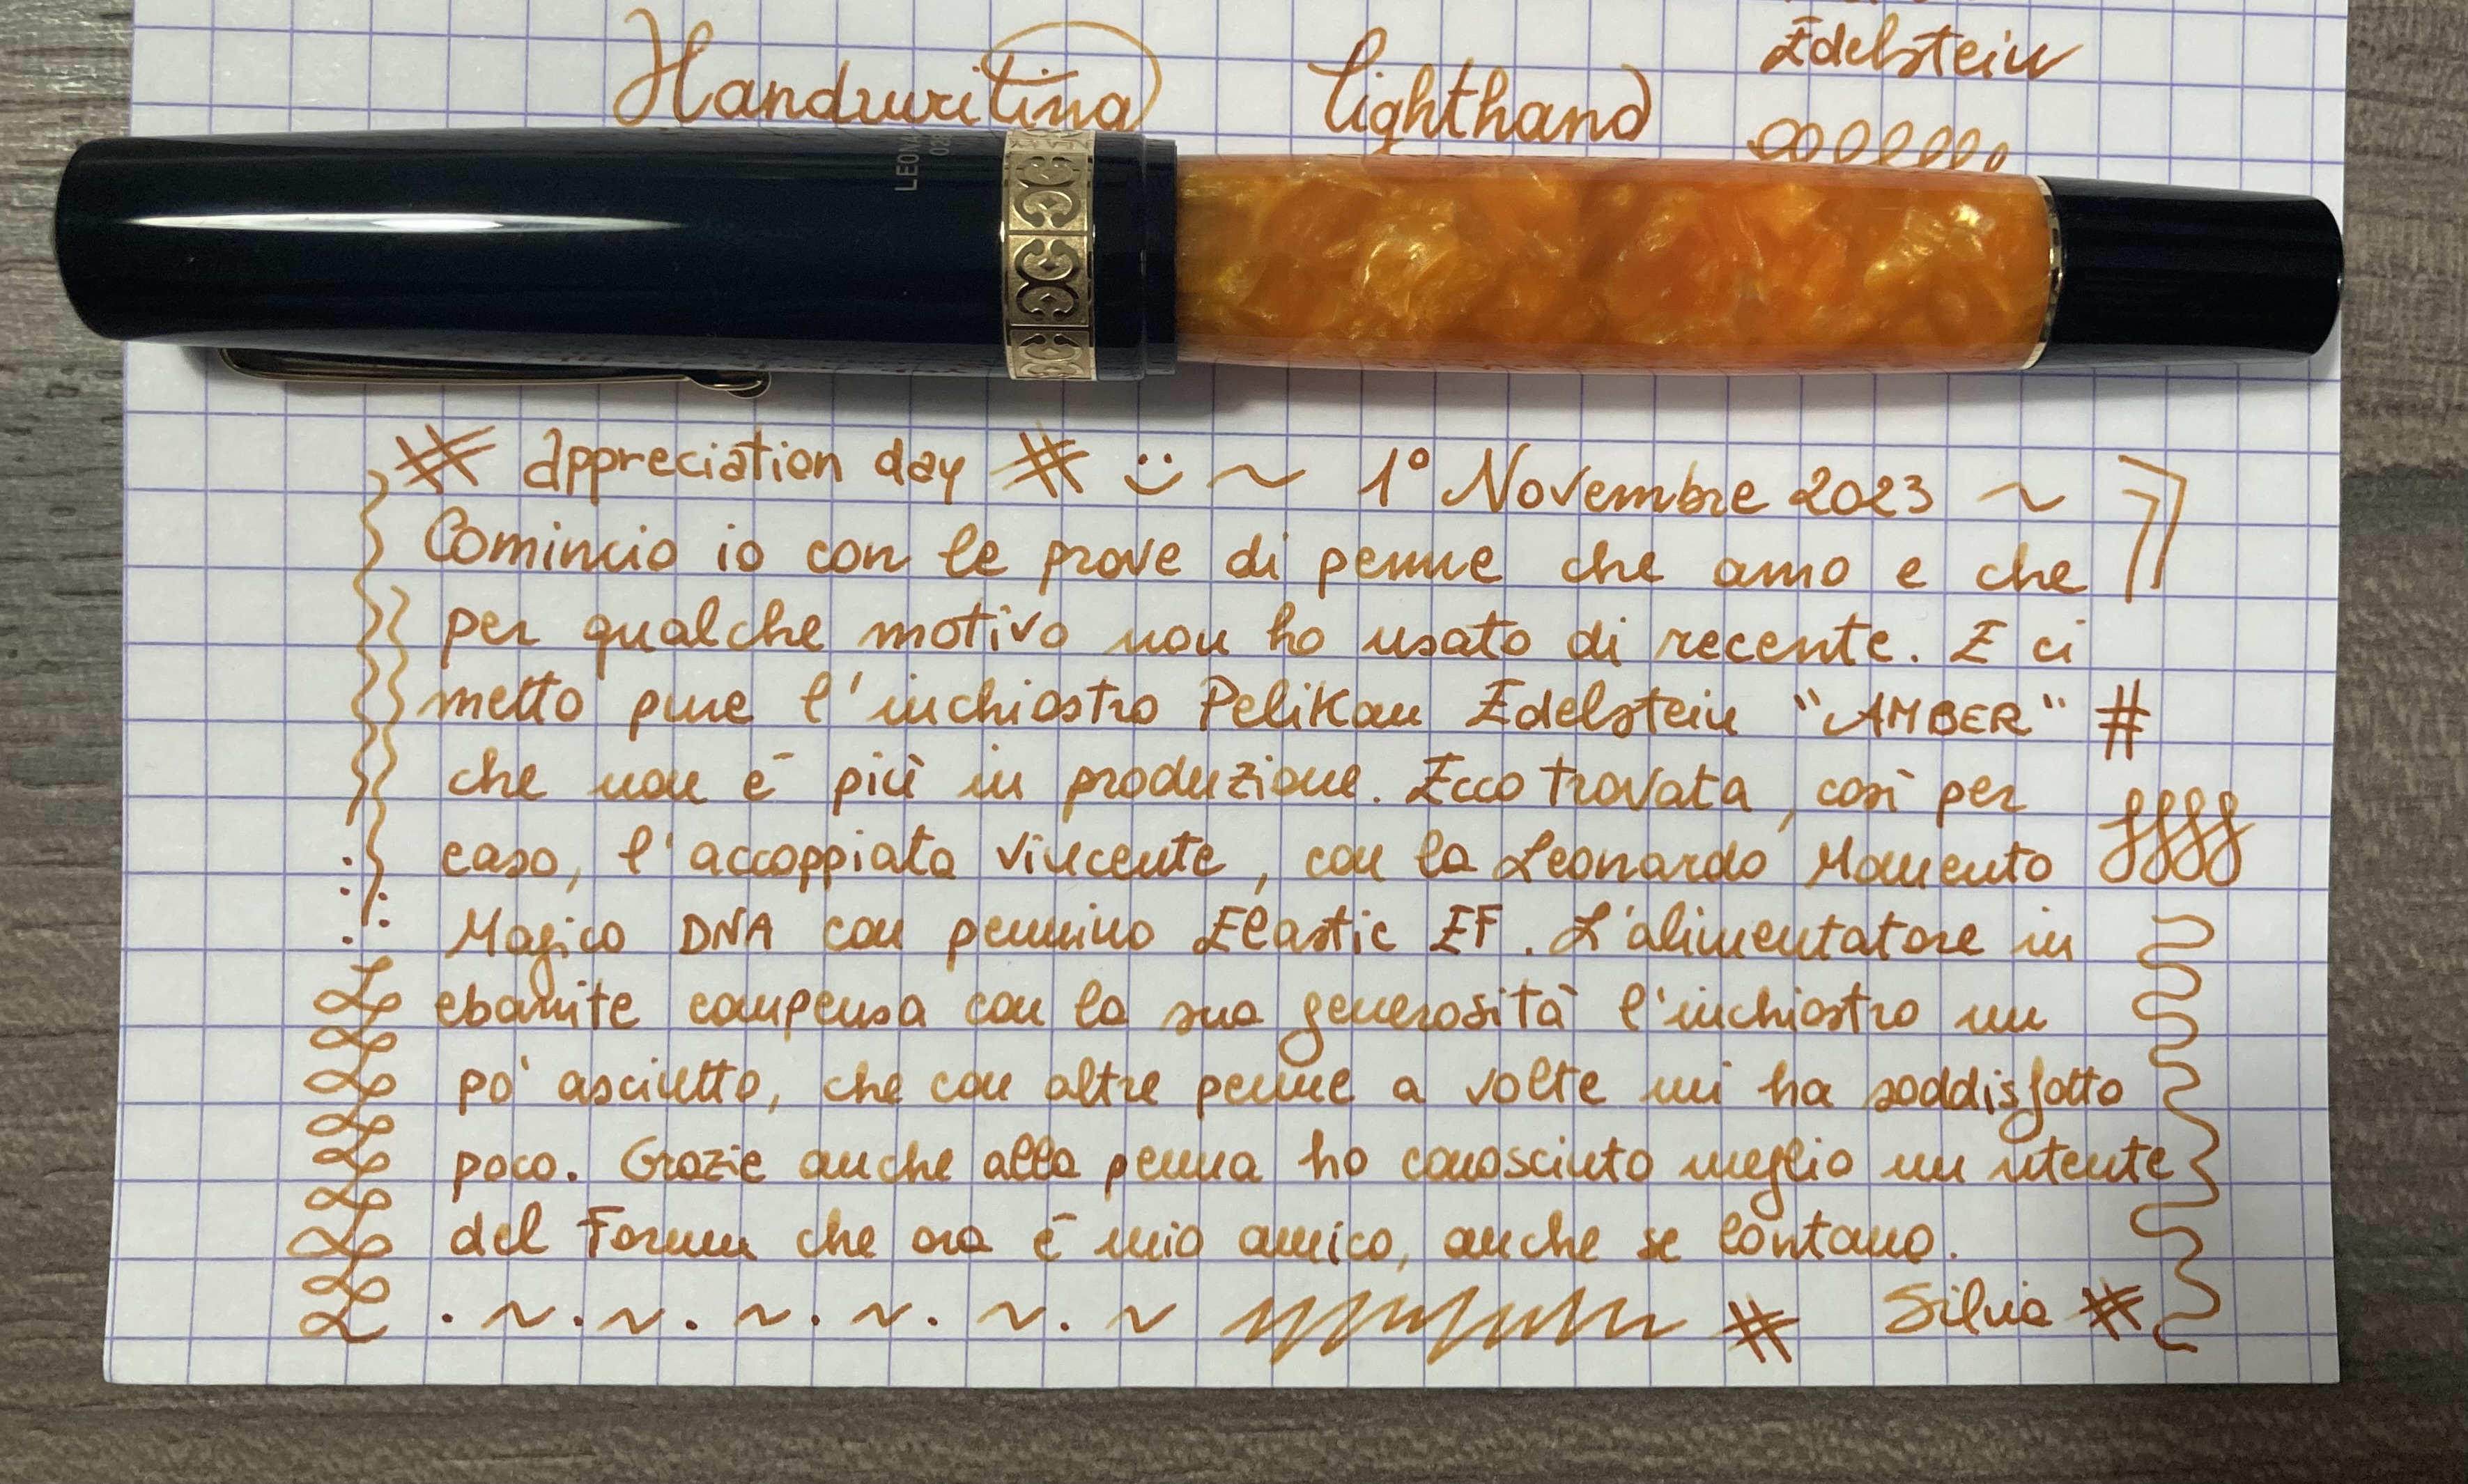 Edelstein
Handwriting lighthand
# Appreciation day # ~ 1° Novembre 2023 ~
Comincio io con le prove di penne che amo e che
per qualche motivo non ho usato di recente. E ci
metto pure l'inchiostro Pelikan Edelstein "AMBER" #
che non è più in produzione. Ecco trovata, così per
caso, l'accoppiata vincente, con la Leonardo Momento
Magico DNA con pennino Elastic EF. L'alimentatore in
ebanite compensa con la sua generosità l'inchiostro un
po' asciutto, che con altre penne a volte mi ha soddisfatto
poco. Grazie anche alla penna ho conosciuto meglio un utente
del Forum che ora è mio amico, anche se lontano.
# Silvia #